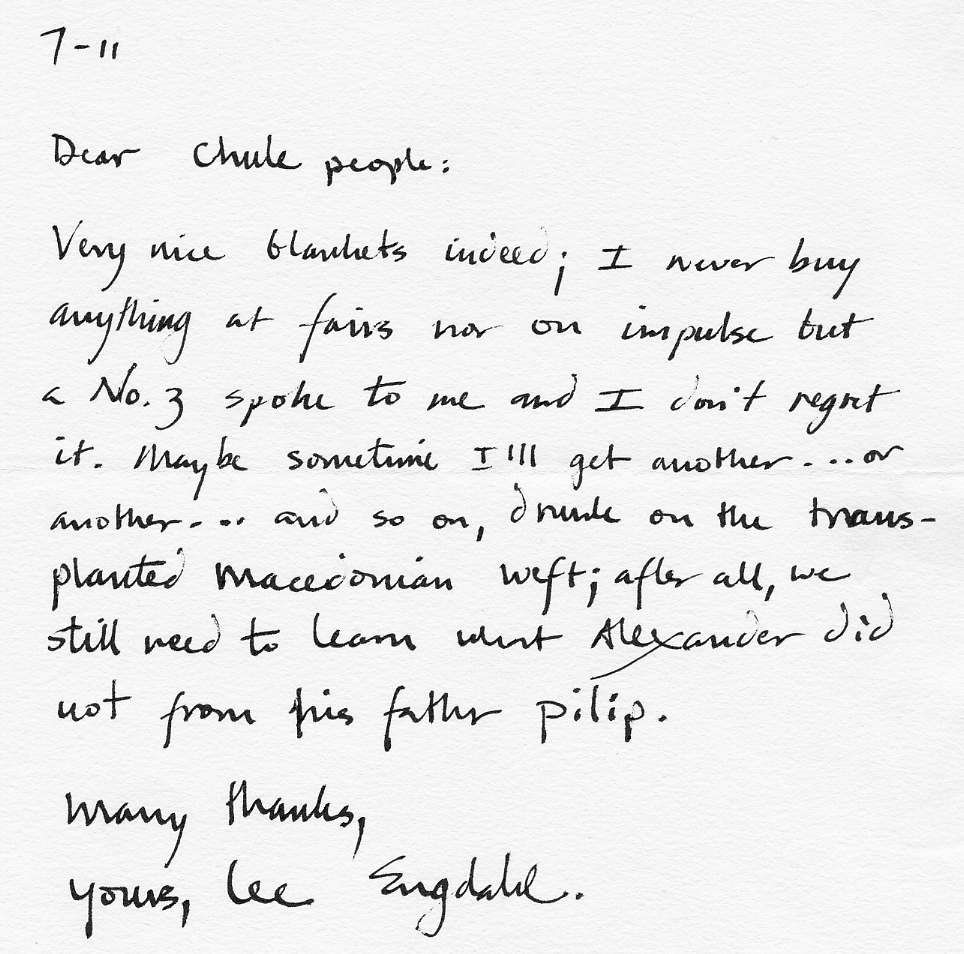 7-11
Dear Chule people:
Very nice blankets indeed; I never buy
anything at fairs nor on impulse but
a No. 3 spoke to me and I don't regret
it. Maybe sometime I'll get another....or
another.... and so on, drunk on the trans-
planted Macedonian weft; after all, we
still need to learn what Alexander did
not from his father pilip.
Many thanks,
yours, Lee Engdahl.